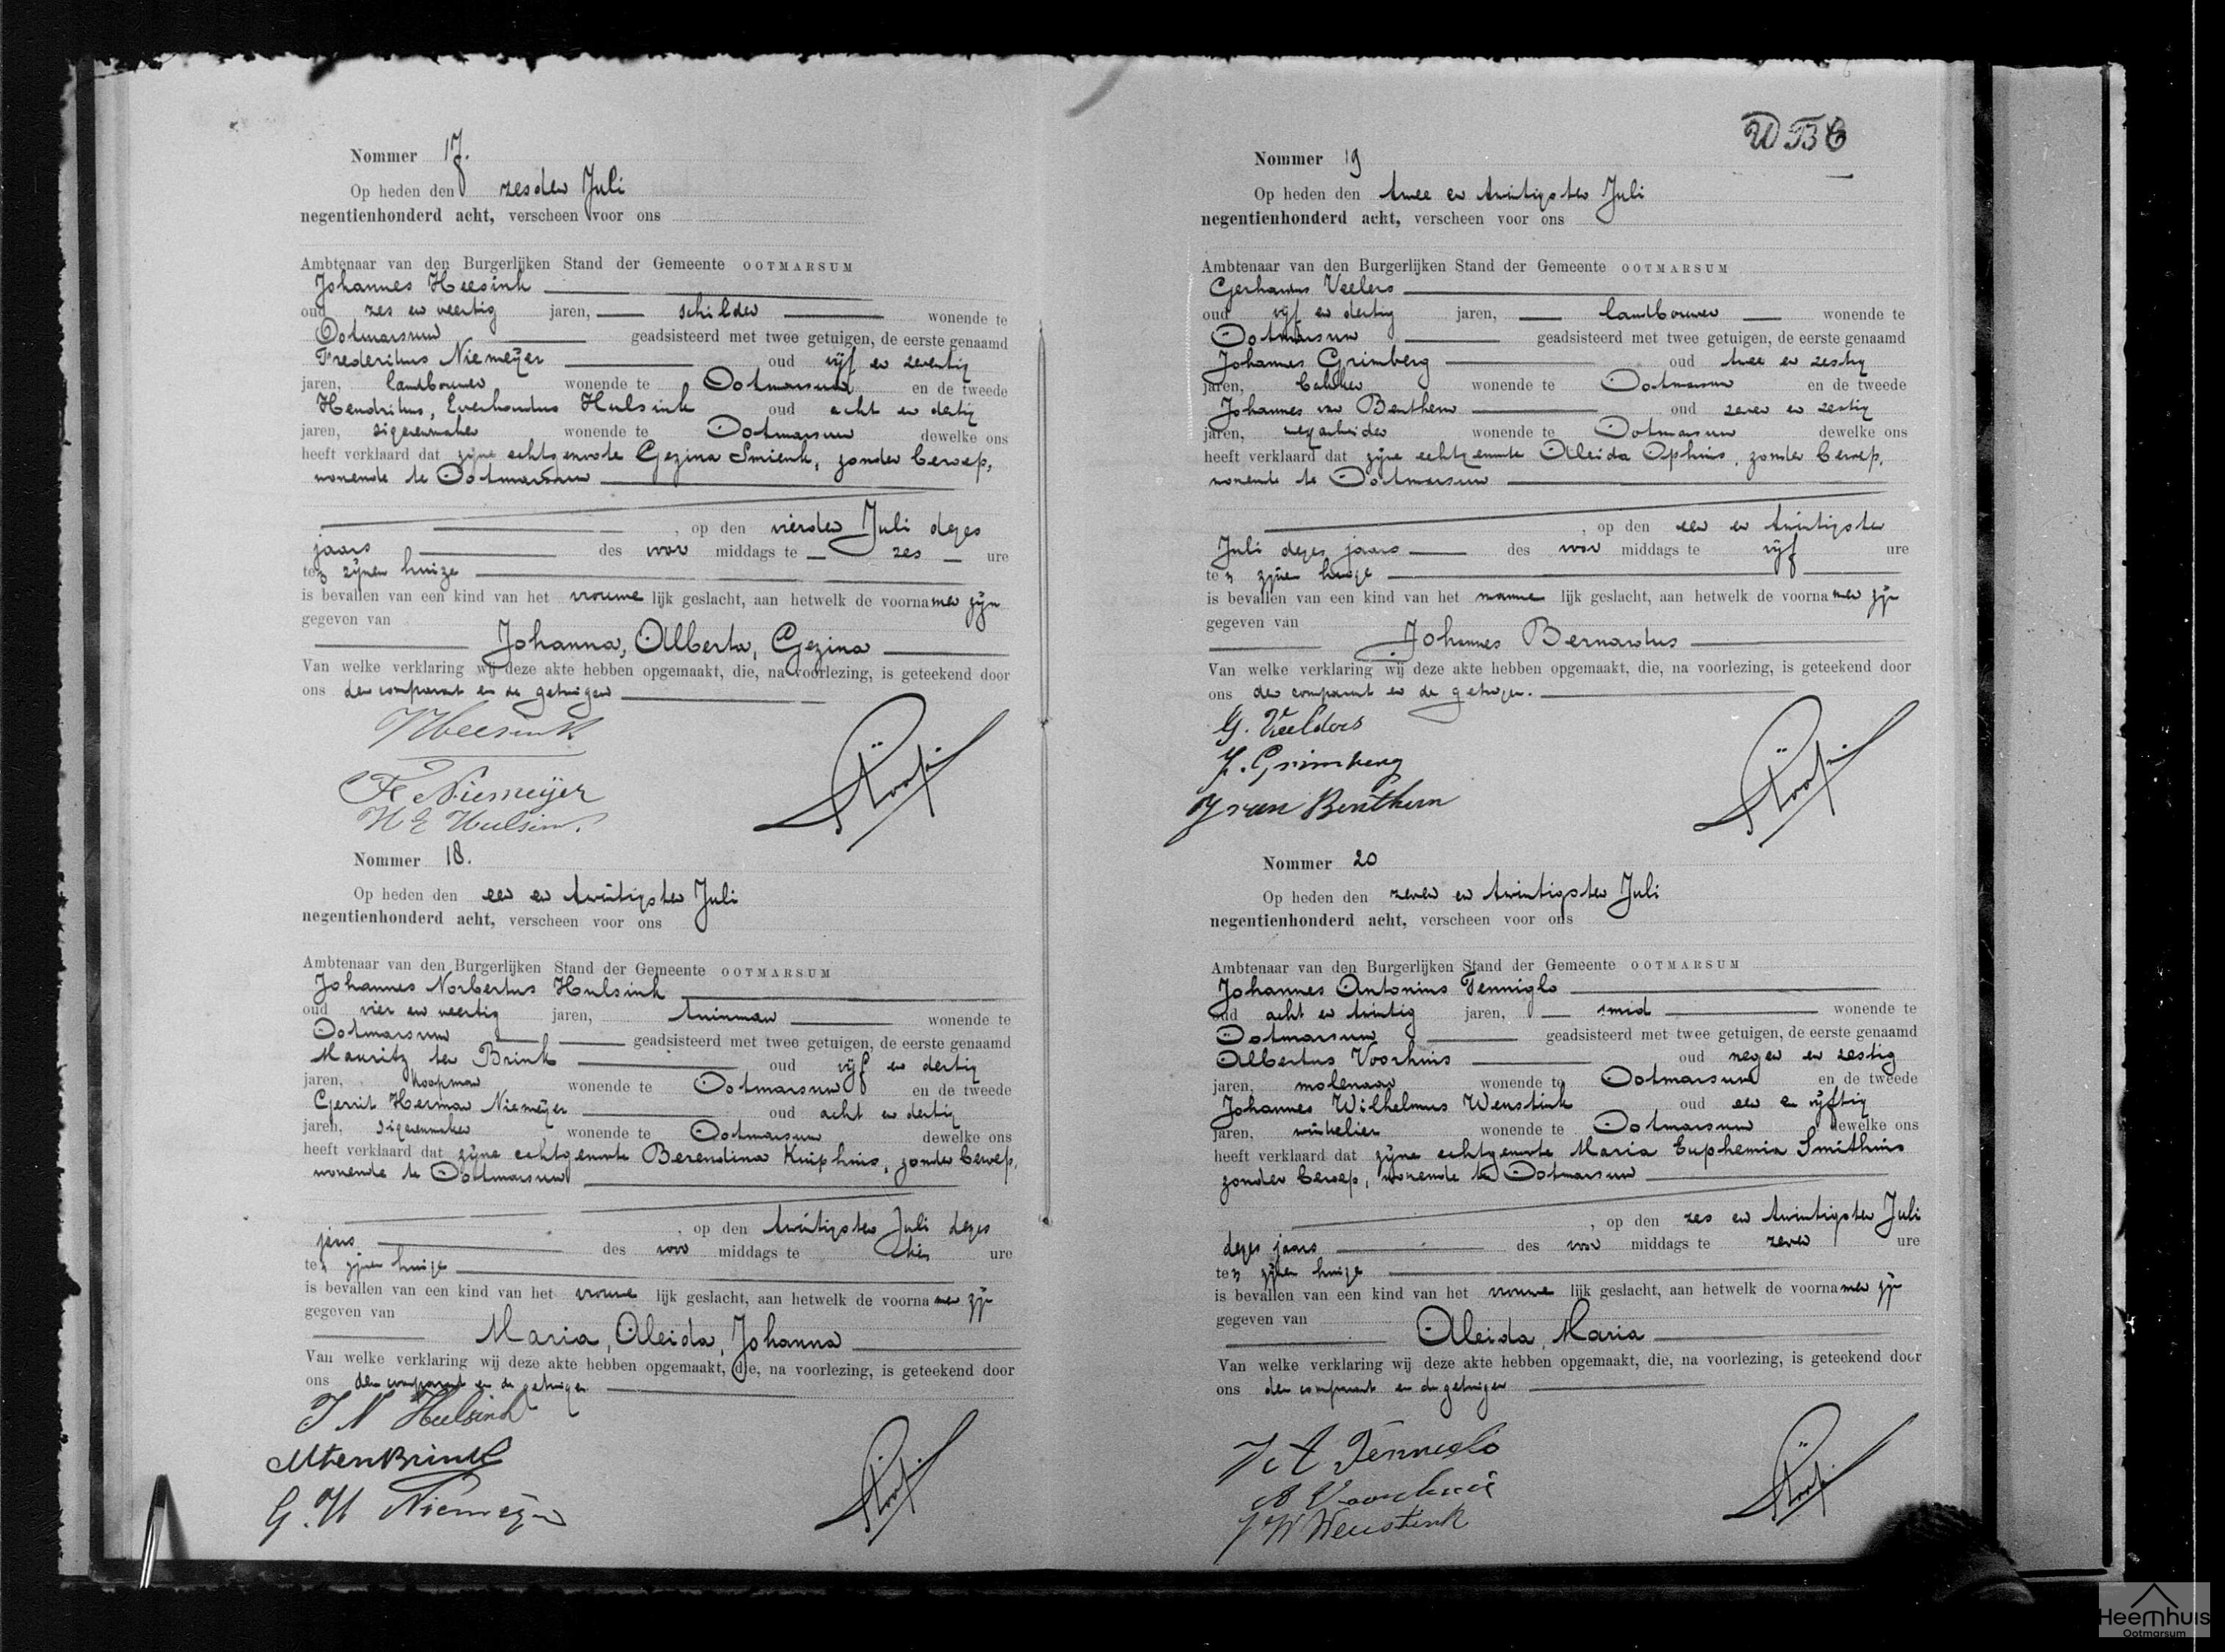 Nommer 17.
Op heden den zesden Juli
negentienhonderd acht, verscheen voor ons
Ambtenaar van den Burgerlijken Stand der Gemeente OOTMARSUM
Johannes Heesink
oud zes en veertig jaren, schilder wonende te
Ootmarsum geadsisteerd met twee getuigen, de eerste genaamd
Frederikus Niemeijer oud vijf en zeventig
jaren, landbouwer wonende te Ootmarsum en de tweede
Hendrikus, Everhardus Hulsink oud acht en dertig
jaren, sigarenmaker wonende te Ootmarsum dewelke ons
heeft verklaard dat zijne echtgenoote Gezina Smienk, zonder beroep,
wonende te Ootmarsum
, op den vierden Juli dezes
jaars des voor middags te zes ure
te zijnen huize
is bevallen van een kind van het vrouwe lijk geslacht, aan hetwelk de voornamen zijn
gegeven van
Johanna, Alberta, Gezina
Van welke verklaring wij deze akte hebben opgemaakt, die, na voorlezing, is geteekend door
ons den comparant en de getuigen
JHeesink
F Niemeijer
H E Hulsink
Nommer 18.
Op heden den een en twintigsten Juli
negentienhonderd acht, verscheen voor ons
Ambtenaar van den Burgerlijken Stand der Gemeente OOTMARSUM
Johannes Norbertus Hulsink
oud vier en veertig jaren, tuinman wonende te
Ootmarsum geadsisteerd met twee getuigen, de eerste genaamd
Mauritz ten Brink oud vijf en dertig
jaren, koopman wonende te Ootmarsum en de tweede
Gerrit Herman Niemeijer oud acht en dertig
jaren, sigarenmaker wonende te Ootmarsum dewelke ons
heeft verklaard dat zijne echtgenoote Berendina Kuiphuis, zonder beroep,
wonende te Ootmarsum
, op den twintigsten Juli dezes
jaars des voor middags te tien ure
te zijnen huize
is bevallen van een kind van het vrouwe lijk geslacht, aan hetwelk de voornamen zijn
gegeven van
Maria, Aleida, Johanna
Van welke verklaring wij deze akte hebben opgemaakt, die, na voorlezing, is geteekend door
ons den comparant en de getuigen
J N Hulsink
MtenBrink
G. H Niemeijer
WBC
Nommer 19
Op heden den twee en twintigsten Juli
negentienhonderd acht, verscheen voor ons
Ambtenaar van den Burgerlijken Stand der Gemeente OOTMARSUM
Gerhardus Veelers
oud vijf en dertig jaren, landbouwer wonende te
Ootmarsum geadsisteerd met twee getuigen, de eerste genaamd
Johannes Grimberg oud twee en zestig
jaren, bakker wonende te Ootmarsum en de tweede
Johannes van Benthem oud zeven en zestig
jaren, wegarbeider wonende te Ootmarsum dewelke ons
heeft verklaard dat zijne echtgenoote Aleida Ophuis, zonder beroep,
wonende te Ootmarsum
, op den een en twintigsten
Juli dezes jaars des voor middags te vijf ure
te zijnen huize
is bevallen van een kind van het manne lijk geslacht, aan hetwelk de voornamen zijn
gegeven van
Johannes Bernardus
Van welke verklaring wij deze akte hebben opgemaakt, die, na voorlezing, is geteekend door
ons den comparant en de getuigen.
G. Veelders
J. Grimberg
J van Benthem
Nommer 20
Op heden den zeven en twintigsten Juli
negentienhonderd acht, verscheen voor ons
Ambtenaar van den Burgerlijken Stand der Gemeente OOTMARSUM
Johannes Antonius Tenniglo
oud acht en twintig jaren, smid wonende te
Ootmarsum geadsisteerd met twee getuigen, de eerste genaamd
Albertus Voorhuis oud negen en zestig
jaren, molenaar wonende te Ootmarsum en de tweede
Johannes Wilhelmus Weustink oud een en vijftig
jaren, winkelier wonende te Ootmarsum dewelke ons
heeft verklaard dat zijne echtgenoote Maria Euphemia Smithuis
zonder beroep, wonende te Ootmarsum
, op den zes en twintigsten Juli
dezes jaars des voor middags te zeven ure
te zijnen huize
is bevallen van een kind van het vrouwe lijk geslacht, aan hetwelk de voornamen zijn
gegeven van
Aleida, Maria
Van welke verklaring wij deze akte hebben opgemaakt, die, na voorlezing, is geteekend door
ons den comparant en de getuigen
J A Tenniglo
A Voorhuis
J W Weustink
Heemhuis
Ootmarsum